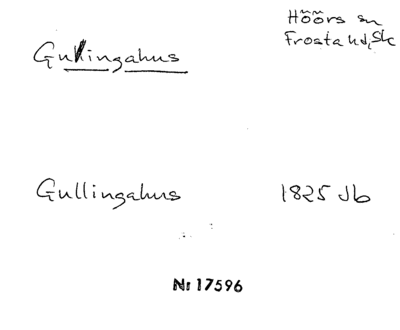 Höörs sn
Gullingahus
Frosta hd, Sk
Gullingahus 1825 Jb
Nr 17596